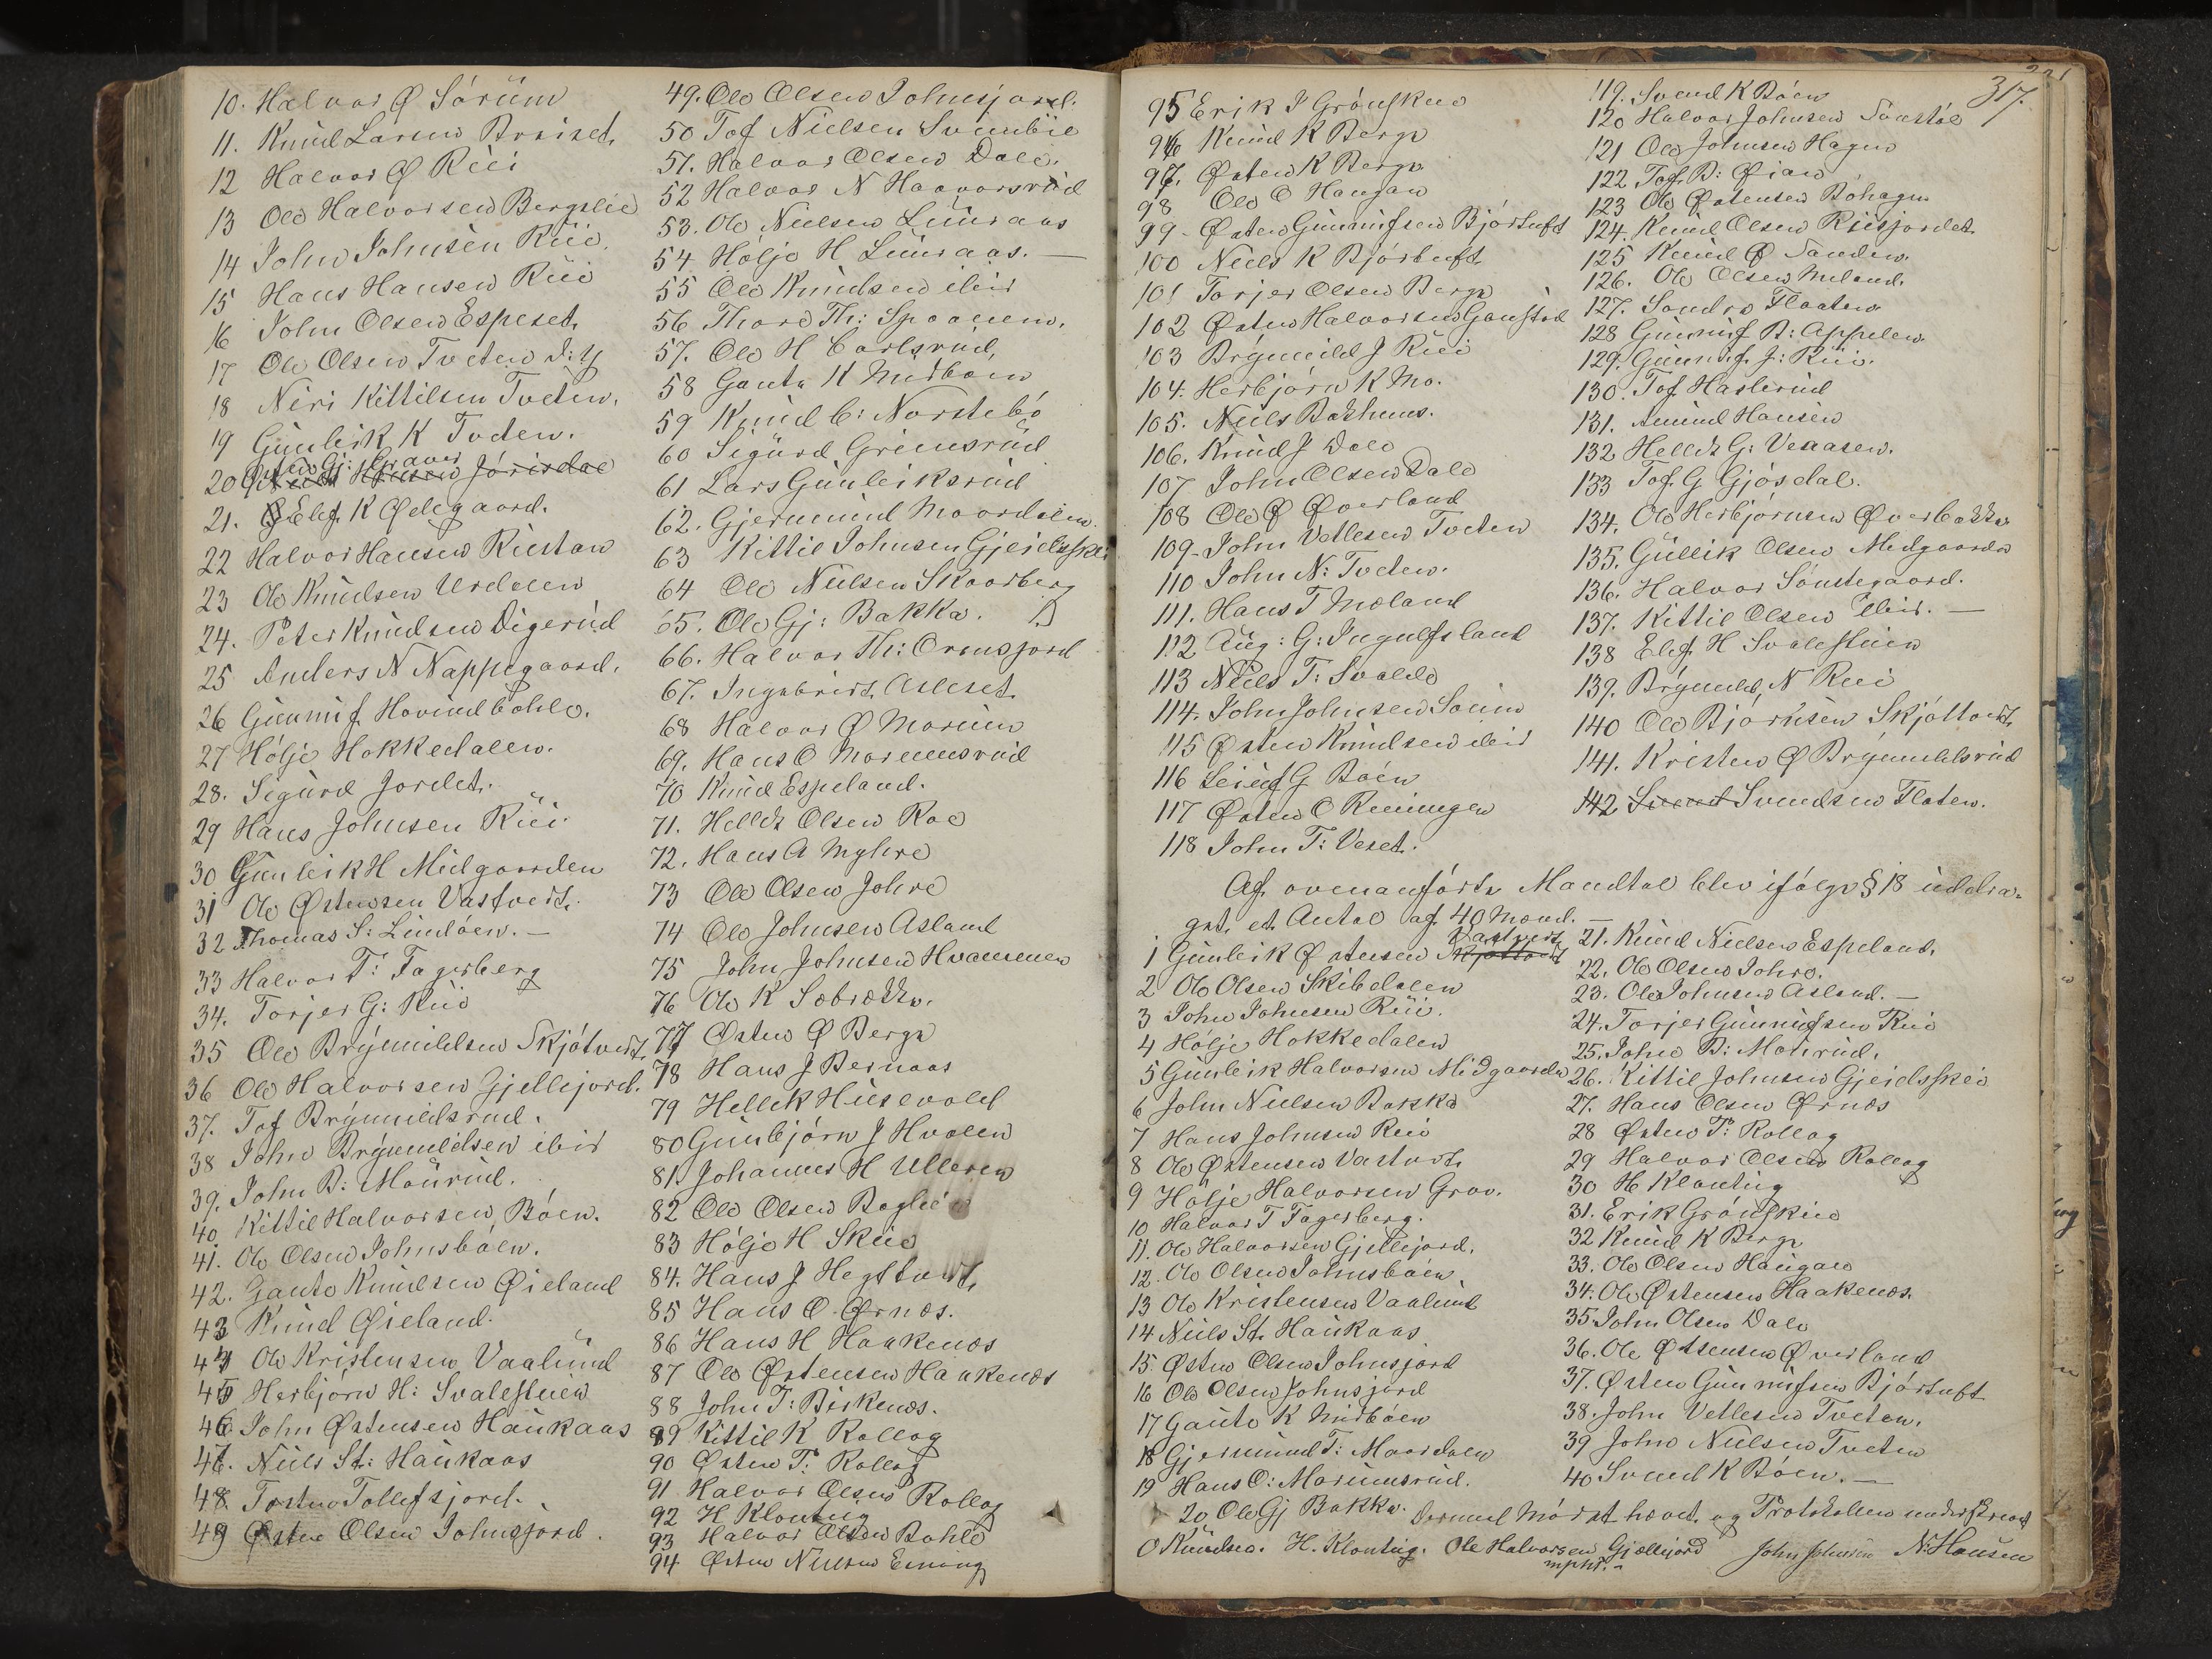 10. Halvor Ø Sörüm
11. Knud Larsen Braaset.
12 Halvor Ø Rüi
13 Ole Halvorsen Bergslie
14 John Johnsen Rüe.
15 Hans Hansen Rüe
16 John Olsen Espeset.
17 Ole Olsen Tveten d: y
18 Neri Kittilsen Tveten.
19 Günleik K Tveten.
Gj: Graver
20 Jörisdal
21. Elef K Ødegaard.
22 Halvor Hansen Rüstan
23 Ole Knudsen Urdalen
24. Peter Knudsen Digerüd
25 Anders N Nappegaard.
26 Günnuf Hovindbøhle.
27 Hölje Hokkedalen.
28. Sigürd Jordet.
29 Hans Johnsen Rüi
30 Günleik H Midgaarden
31 Ole Østensen Vastveit.
32 Thomas S: Lindöen. —
33 Halvor T: Fagerberg
34. Torjer G: Rüe
35 Ole Brynnildsen Skjötveit
36 Ole Halvorsen Gjellejord.
37. Tof Brynnildsrud.
38 John Brynnildsen ibid
39. John B: Mourüd.
40. Kittil Halvorsen Böen.
41. Ole Olsen Johnsbøen.
42. Gaute Knudsen Øieland
43 Knud Øieland.
44 Ole Kristensen Vaalünd
45 Herbjörn H: Svalestuen
46 John Østensen Haukaas
47. Niels St: Haukaas
48. Tosten Tollefsjord.
49 Østen Olsen Johnsjord.
49. Ole Olsen Johnsjord.
50 Tof Nielsen Svenbüe
51. Halvor Olsen Dale.
52 Halvor N Haavorsrüd
53. Ole Nielsen Lüüraas
54 Hölje H Lüüraas. —
55 Ole Knudsen ibid
56 Thore Th: Spaanem.
57. Ole H Carlsrud,
58 Gaute K Midbøen
59 Knud C: Norstebö
60 Sigürd Grimsrüd
61 Lars Günleiksrüd
62. Gjermund Maardalen.
63 Kittil Johnsen Gjeidsskei
64 Ole Nielsen Skaarberg
65. Ole Gj: Bakka.
66. Halvor Th: Ormsjord
67. Ingebrigt Asleset.
68 Halvor Ø Morüün
69. Hans O Moremsrüd
70 Knud Espeland.
71. Hellek Olsen Roe
72. Hans A Myhre
73 Ole Olsen Johre
74 Ole Johnsen Asland
75 John Johnsen Hvammen
76 Ole K Sæbrække.
77 Østen Ø Berge
78 Hans J Bernaas
79 Hellek Husevold
80 Günbjörn J Hvalen
81 Johannes H Ulleren
82 Ole Olsen Baglie
83 Hölje H Sküe
84. Hans J Hegstveit.
85 Hans O Ørnes.
86 Hans H Haakenæs
87 Ole Østensen Haakenæs
88 John T: Birkenæs.
89 Kittil K Rollag
90 Østen T: Rollag
91 Halvor Olsen Rollag
92 H Klonteig
93 Halvor Olsen Bøhle
94 Østen Nielsen Einong
317.
95 Erik J Grönskue
96 Knud K Berge
97. Østen K Berge
98 Ole O Haugan
99 - Østen Günnufsen Bjørtuft
100 Niels K Bjørtuft
101 Torjer Olsen Berge
102 Østen Halvorsen Gaustad
103 Brynnild J Rüi
104. Herbjörn K Mo.
105. Niels Bakhuus.
106. Knud J Dale
107 John Olsen Dale
108 Ole Ø Øverland
109 - John Vetlesen Tveten
110 John N: Tveten.
111. Hans T Mæland
112 Aug: G: Ingulfsland
113 Niels T: Svalde
114. John Johnsen Sönn
115 Østen Knudsen ibid
116 Leiuf G Böen
117 Østen O Reiningen
118 John T: Veset.
119. Svend K Böen
120 Halvor Johnsen Svastöl
121 Ole Johnsen Hagen
122 Tof B: Øian
123 Ole Østensen Böhagen
124. Knud Olsen Rüsjordet.
125 Knud Ø Sanden.
126. Ole Olsen Meland.
127. Sondre Flaaten.
128 Günnuf B: Appelen.
129. Günnuf J: Rüi.
130. Tof Haslerüd
131. Amund Hansen
132 Hellek G: Veaasen.
133 Tof G Gjösdal.
134. Ole Herbjörnsen Øverbakka
135. Güllik Olsen Midgaarden
136. Halvor Sönstegaard.
137. Kittil Olsen ibid. —
138 Elef H Svalestuen
139. Brynnild N Rui
140 Ole Björnsen Skjöttveit.
141. Kristen Ø Brynnildsrud
142 Svend Svendsen Flaten.
Af ovenanførte Mandtal blev ifølge § 18 uddra-
get et Antal af 40 Mænd. —
Vastveit
1 Günleik Østensen Skjöttveit
2 Ole Olsen Skibdalen
3 John Johnsen Rüi.
4 Hölje Hokkedalen
5 Günleik Halvorsen Midgaarden
6 John Nielsen Bakka
7 Hans Johnsen Rui
8 Ole Østensen Vastveit.
9 Hölje Halvorsen Grav.
10 Halvor T Fagerberg.
11. Ole Halvorsen Gjellejord.
12. Ole Olsen Johnsbøen
13 Ole Kristensen Vaalund
14 Niels St. Haukaas
15. Østen Olsen Johnsjord
16 Ole Olsen Johnsjord
17 Gaute K Midbøen
18 Gjermund T: Maardalen
19 Hans O: Moremsrud.
20 Ole Gj Bakka.
21. Knud Nielsen Espeland.
22. Ole Olsen Johre.
23. Ole Johnsen Asland. —
24. Torjer Günnufsen Rui
25. John B: Mourud.
26. Kittil Johnsen Gjeidsskei
27. Hans Olsen Ørnæs
28 Østen T: Rollag
29 Halvor Olsen Rollag
30 H Klonteig
31. Erik Grönskue
32 Knud K Berge
33. Ole Olsen Haugan
34. Ole Østensen Haakenæs.
35. John Olsen Dale
36. Ole Østensen Øverland
37. Østen Günnufsen Bjørtuft
38. John Vetlesen Tveten.
39 John Nielsen Tveten
40 Svend K Böen. —
Dermed Mödet hævet og Protokollen underskrevet
O Knudsen. H. Klonteig. Ole Halvorsen Gjellejord John Johnsen N. Hansen
mphP.